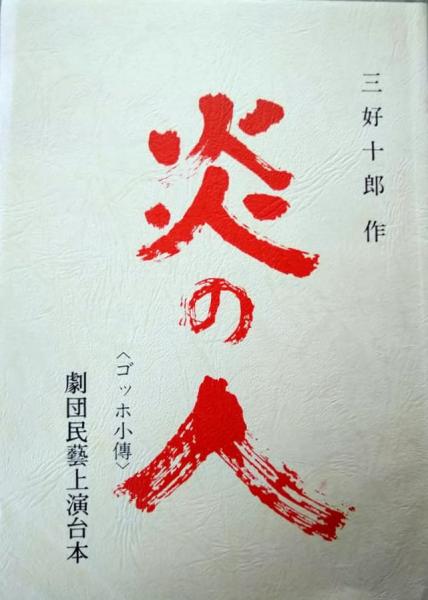 三好十郎 作
炎の人
〈ゴッホ小傳〉
劇団民藝上演台本